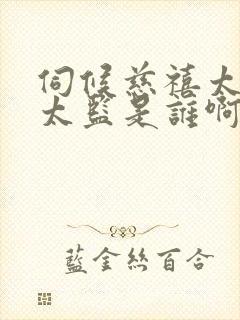 伺候慈禧太
太監是誰啊
藍金絲百合